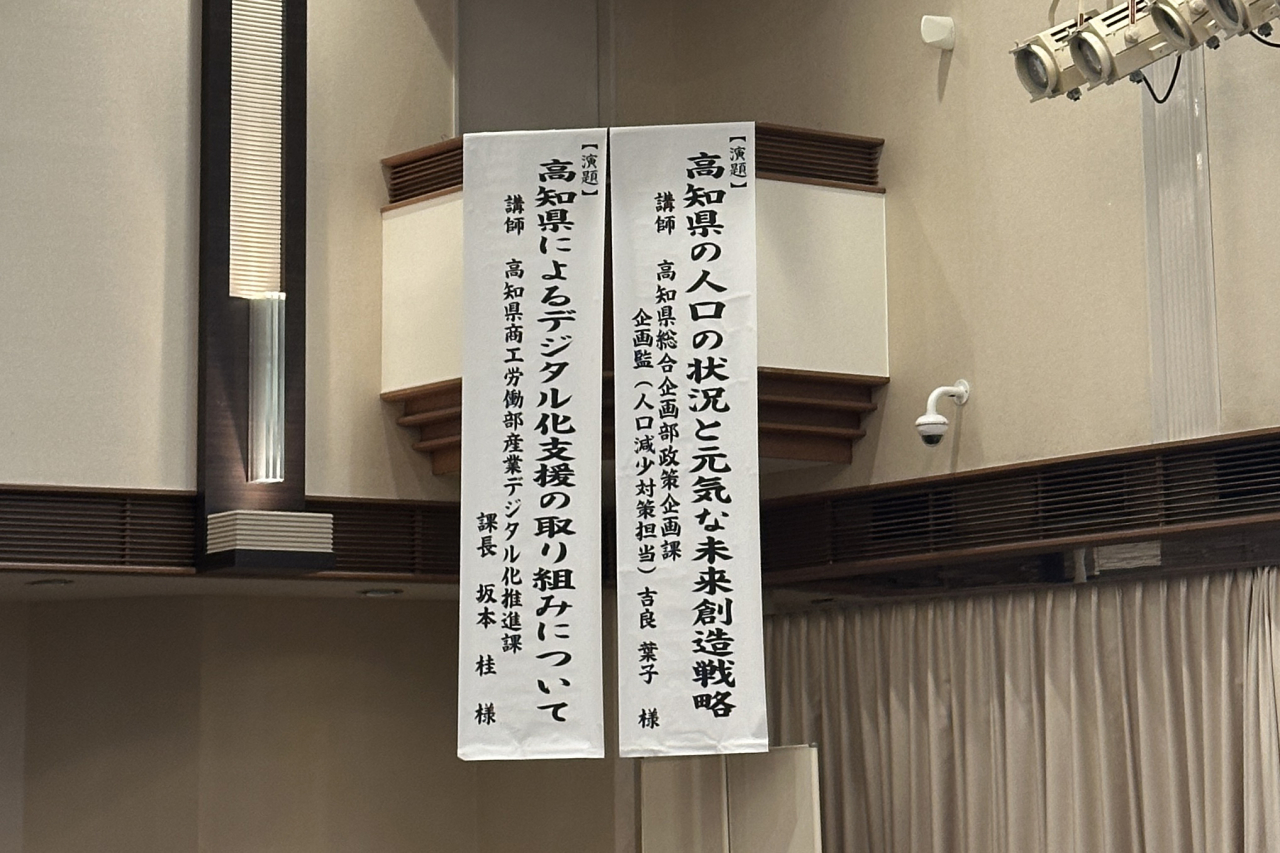 【演題】
高知県の人口の状況と元気な未来創造戦略
講師 高知県総合企画部政策企画課
企画監（人口減少対策担当）吉良 葉子 様
【演題】
高知県によるデジタル化支援の取り組みについて
講師 高知県商工労働部産業デジタル化推進課
課長 坂本 桂 様